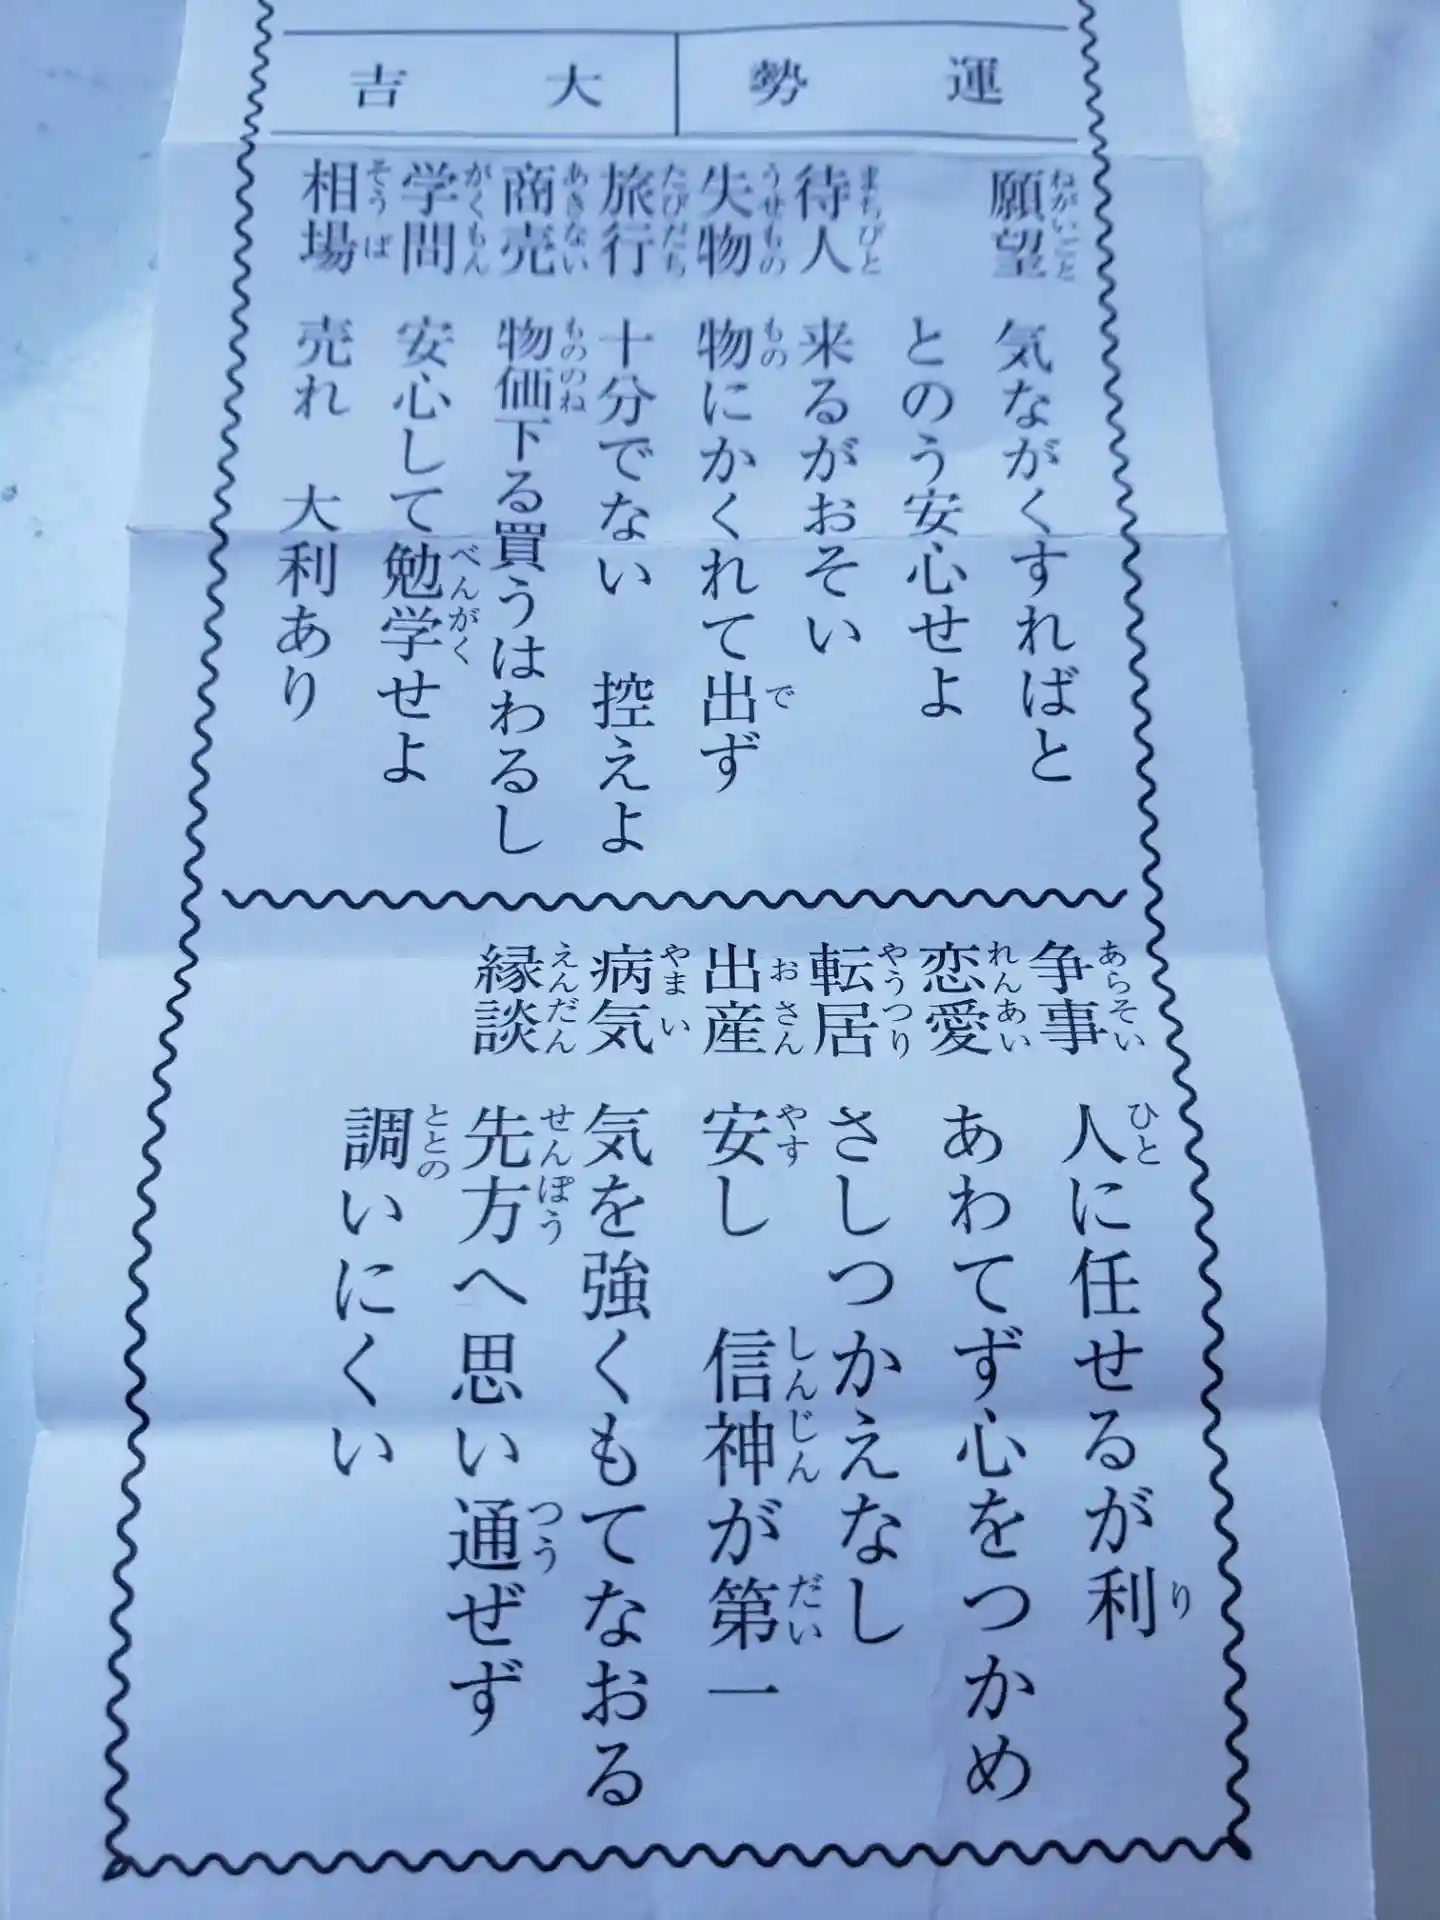 運勢 大吉
願望 ねがいごと 気ながくすればとと
とのう安心せよ
待人 まちびと 来るがおそい
失物 うせもの 物にかくれて出ず もの で
旅行 たびだち 十分でない 控えよ
商売 あきない 物価下る買うはわるし もののね
学問 がくもん 安心して勉学せよ べんがく
相場 そうば 売れ 大利あり
争事 あらそい 人に任せるが利 ひと り
恋愛 れんあい あわてず心をつかめ
転居 やうつり さしつかえなし
出産 おさん 安し 信神が第一 やす しんじん だい
病気 やまい 気を強くもてなおる
縁談 えんだん 先方へ思い通ぜず せんぽう つう
調いにくい ととの